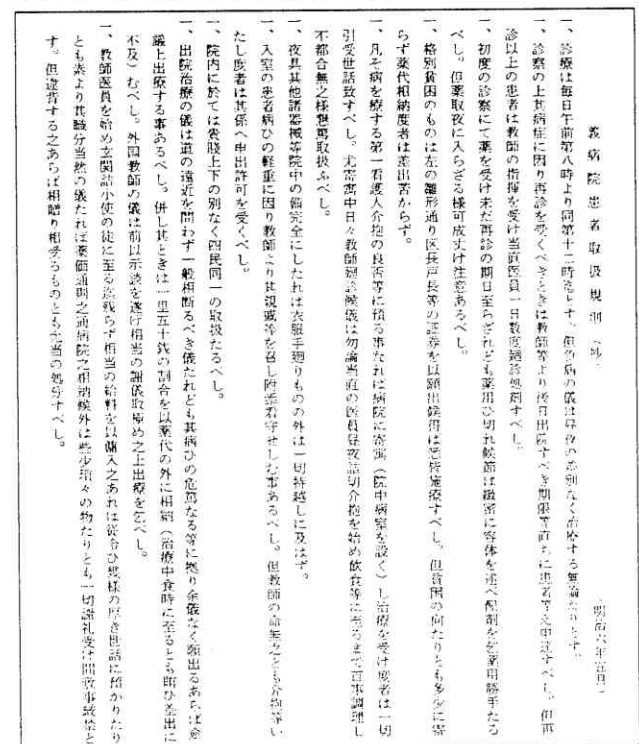 義病院患者取扱規則（抄）
（明治六年五月）
一、診療は毎日午前第八時より同第十二時迄とす。但急病の儀は昼夜の差別なく治療する無論たりとす。
一、診察の上其病症に因り再診を受くべきときは教師等より後日出院すべき期限等直ちに患者等え申達すべし。但再
診以上の患者は教師の指揮を受け当直医員一日数度廻診処剤すべし。
一、初度の診察にて薬を受け未だ再診の期日至らざれども薬用ひ切れ候節は緻密に容体を述べ配剤を乞薬用勝手たる
べし。但薬取夜に入らざる様可成丈け注意あるべし。
一、格別貧困のものは左の雛形通り区長戸長等の証券を以願出候得は悉皆施療すべし。但貧困の向たりとも多少に寄
らず薬代相納度者は差出苦からず。
一、凡そ病を療する第一看護人介抱の良否等に預る事たれば病院に寄寓（院中病室を設く）し治療を受け度者は一切
引受世話致すべし。尤寄寓中日々教師廻診候儀は勿論当直の医員昼夜詰切介抱を始め飲食等に至るまで百事調理し
不都合無之様懇篤取扱ふべし。
一、夜具其他諸器械等院中の備完全にしたれは衣服手廻りものの外は一切持越しに及はす。
一、入室の患者病ひの軽重に因り教師より其親戚等を召し附添看守せしむ事あるべし。但教師の命無之とも介抱等い
たし度者は其係へ申出許可を受くべし。
一、院内に於ては貴賤上下の別なく四民同一の取扱たるへし。
一、出院治療の儀は道の遠近を問わず一般相断るべき儀たれども其病ひの危篤なる等に拠り余儀なく願出るあらば
議上出療する事あるべし。併し其ときは一里五十銭の割合を以薬代の外に相納（治療中食時に至るとも賄ひ差出に
不及）むべし。外国教師の儀は前以示談を遂け相当の謝儀取極め之上出療を乞べし。
一、教師医員を始め玄関詰小使の徒に至る迄残らず相当の給料を以傭入之あれは従令ひ幾様の厚き世話に預かりたり
とも素より其職分当然の儀たれば薬価通則之通病院之相納候外は些少瑣々の物たりとも一切謝礼受け間敷事厳禁と
す。但違背する之あらば相贈り相受るものとも允当の処分すべし。